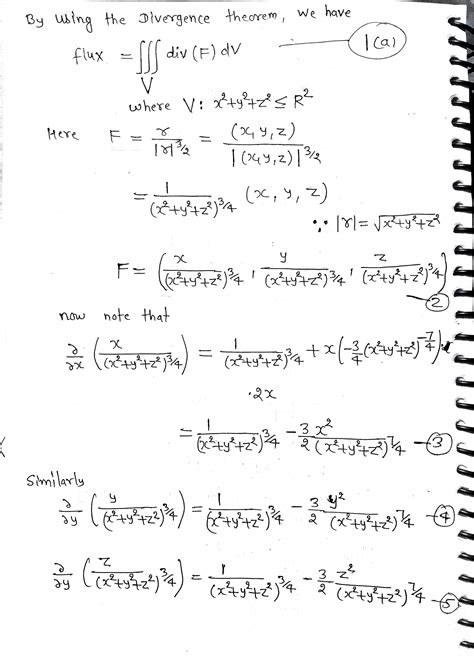 By using the Divergence theorem, we have
flux = ∭_V div (F) dV —— 1(a)
where V: x²+y²+z² ≤ R²
Here F = r/|r|^{3/2} = (x,y,z)/|(x,y,z)|^{3/2}
= 1/(x²+y²+z²)^{3/4} (x, y, z)
∵ |r| = √(x²+y²+z²)
F = (x/(x²+y²+z²)^{3/4}, y/(x²+y²+z²)^{3/4}, z/(x²+y²+z²)^{3/4}) —— 2
now note that
∂/∂x (x/(x²+y²+z²)^{3/4}) = 1/(x²+y²+z²)^{3/4} + x(-3/4 (x²+y²+z²)^{-7/4})
·2x
= 1/(x²+y²+z²)^{3/4} - 3/2 x²/(x²+y²+z²)^{7/4} —— 3
Similarly
∂/∂y (y/(x²+y²+z²)^{3/4}) = 1/(x²+y²+z²)^{3/4} - 3/2 y²/(x²+y²+z²)^{7/4} —— 4
∂/∂y (z/(x²+y²+z²)^{3/4}) = 1/(x²+y²+z²)^{3/4} - 3/2 z²/(x²+y²+z²)^{7/4} —— 5